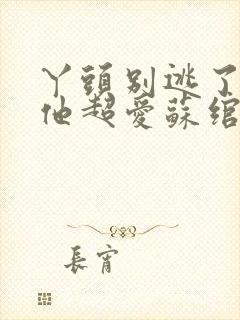 丫頭別逃了
他超愛蘇綰
長宵